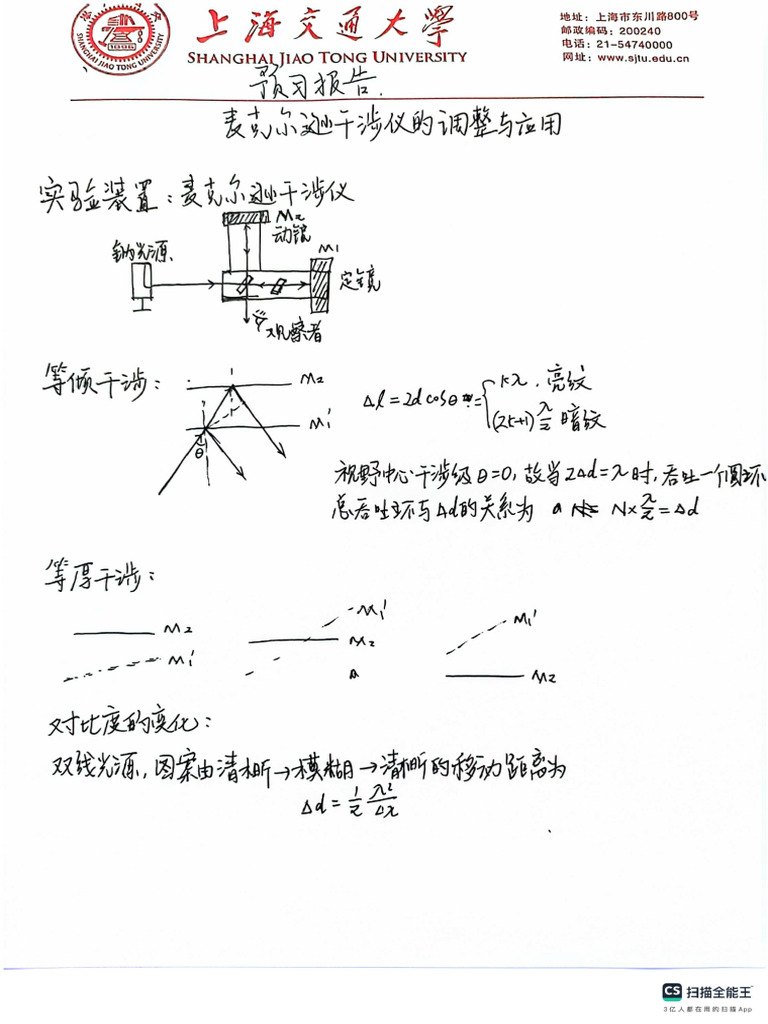 上海交通大学
SHANGHAI JIAO TONG UNIVERSITY
SHANGHAI JIAO TONG UNIVERSITY
1896
地址：上海市东川路800号
邮政编码：200240
电话：21-54740000
网址：www.sjtu.edu.cn
预习报告.
麦克尔逊干涉仪的调整与应用
实验装置：麦克尔逊干涉仪
M2
动镜
钠光源.
M1
定镜
观察者
等倾干涉：
M2
M1'
θ
Δl = 2d cosθ = { kλ . 亮纹
(2k+1) λ/2 暗纹
视野中心干涉级 θ=0, 故当 2Δd=λ 时, 吞吐一个圆环
总吞吐环与Δd的关系为 N × λ/2 = Δd
等厚干涉：
M2
M1'
M1'
M2
M1'
M2
对比度的变化：
双线光源, 图案由清晰→模糊→清晰的移动距离为
Δd = 1/2 λ²/Δλ
CS 扫描全能王
3亿人都在用的扫描App